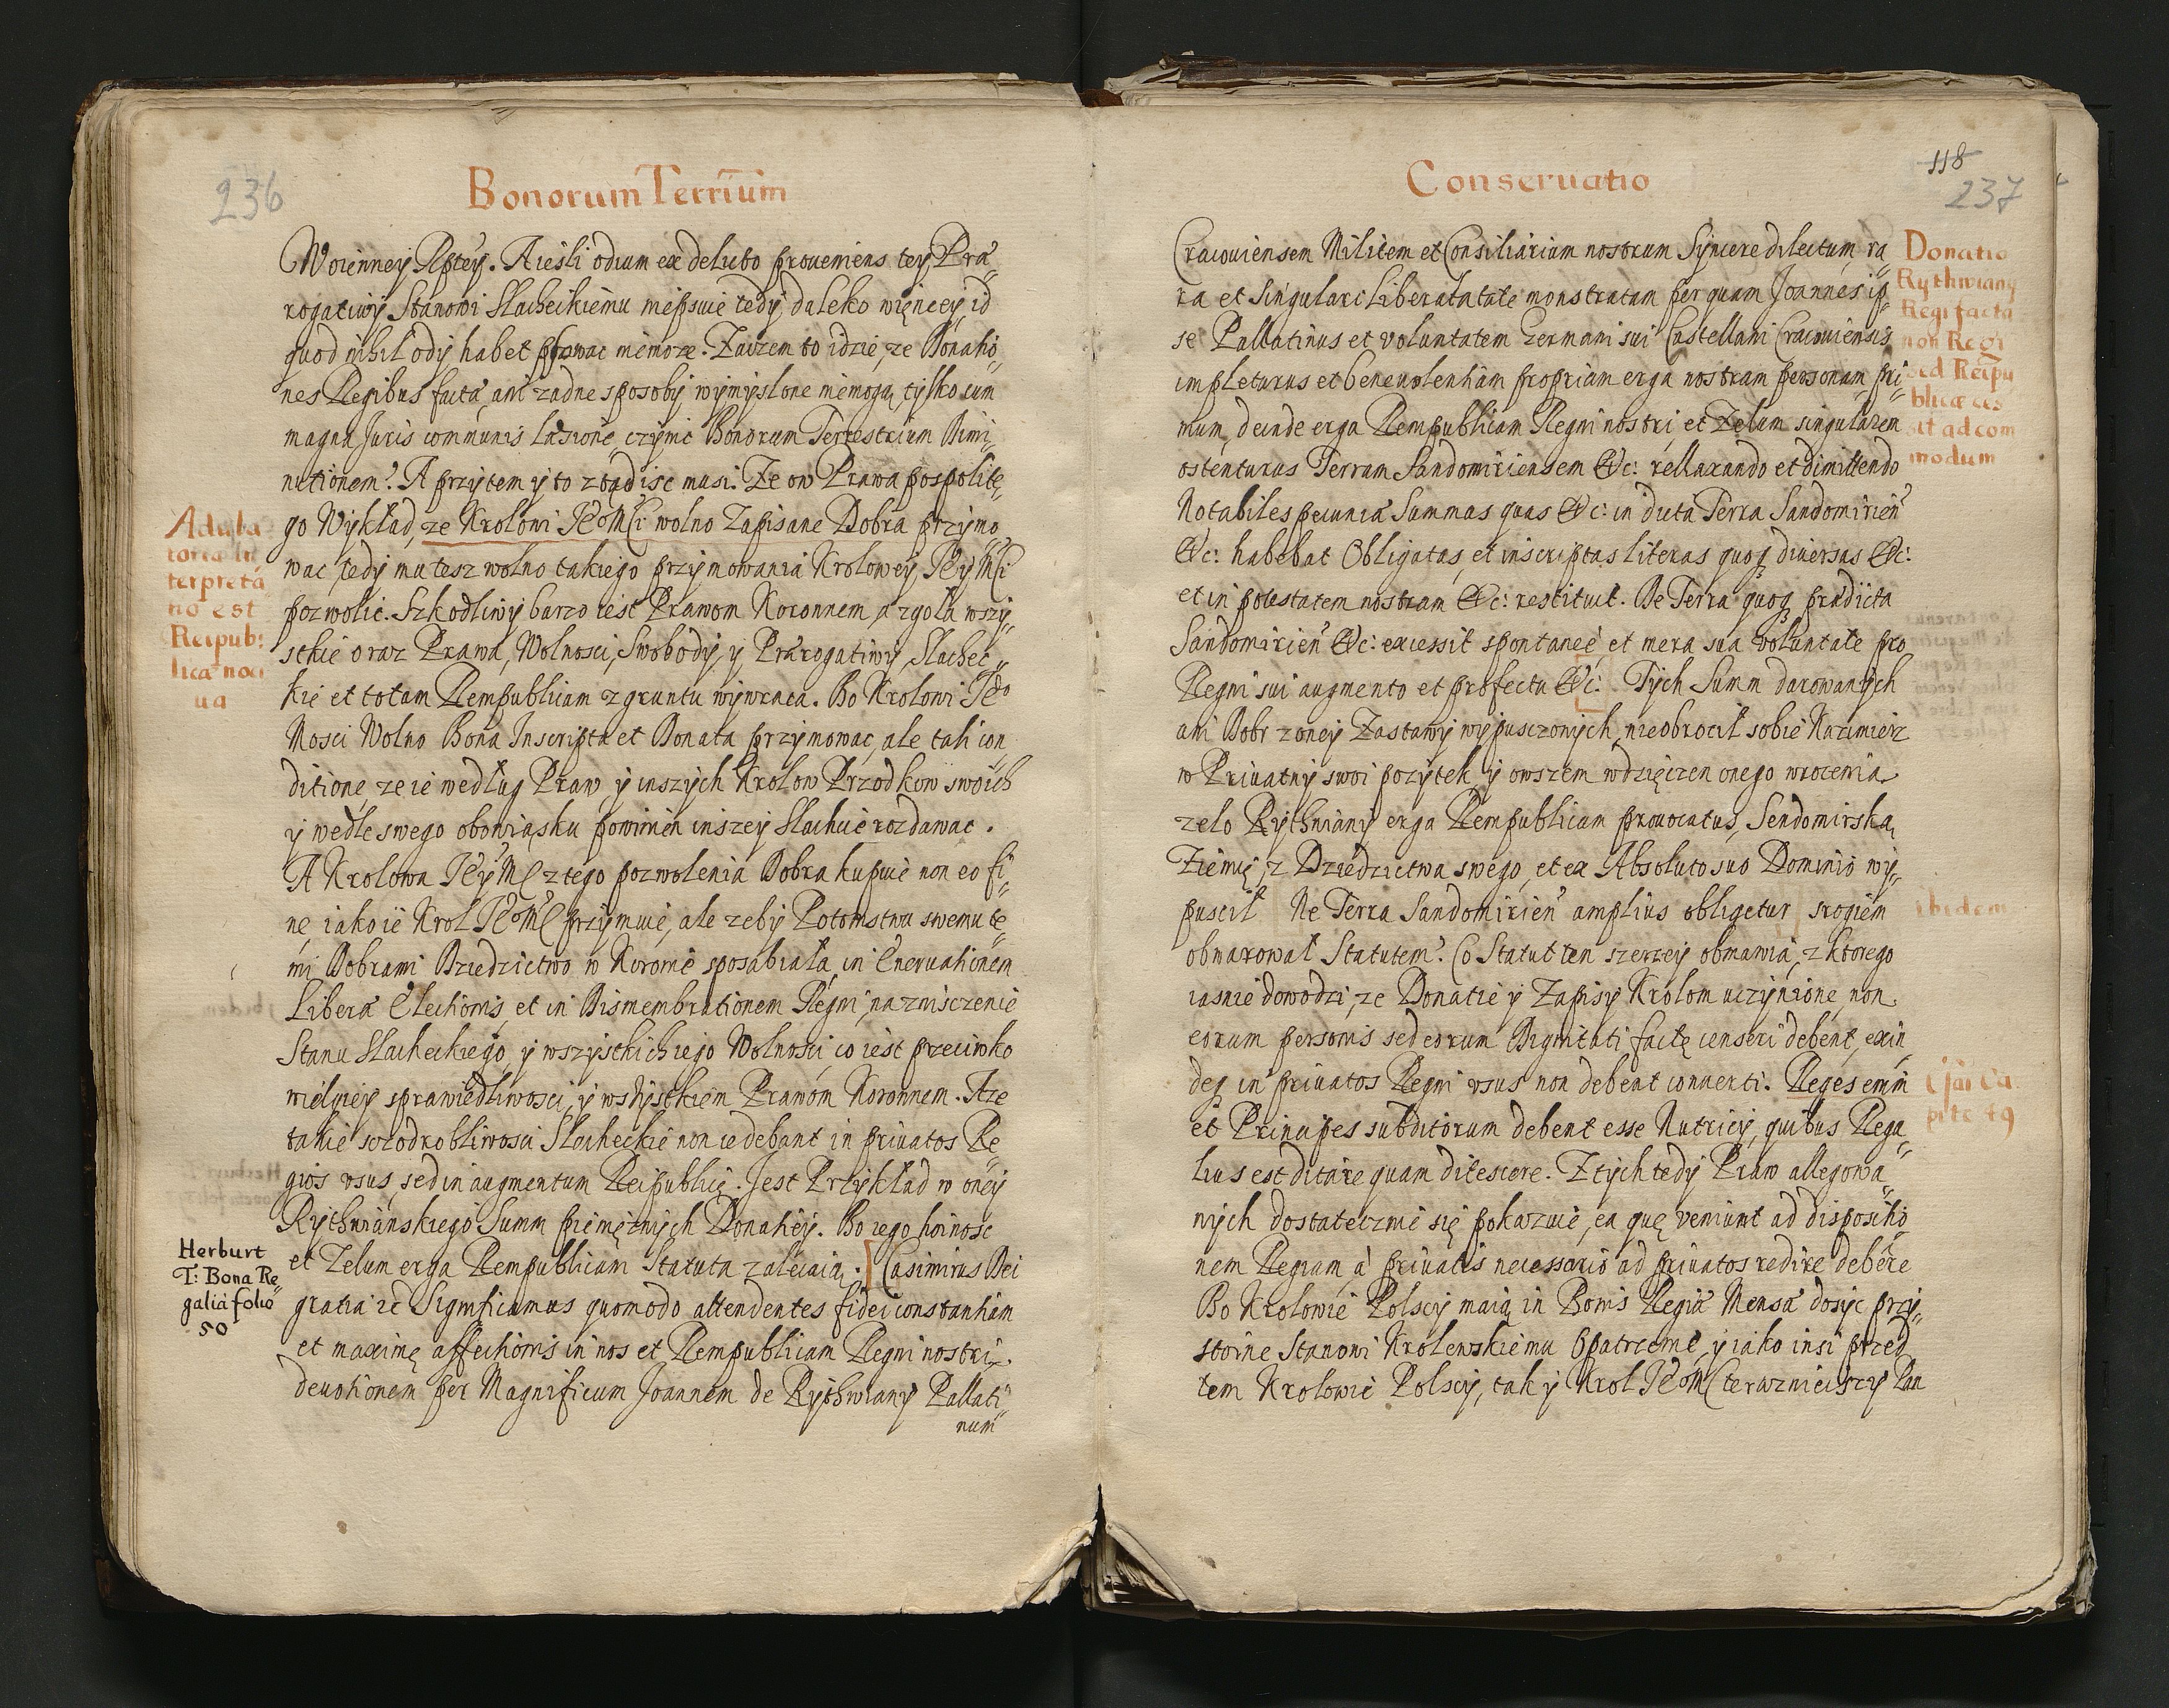 236
Bonorum Terrium
Woienney Rptey. A iesli odium ex delicto proueniens tey Præ„
rogatiwy Stanowi Slacheckiemu niepsuie tedy, daleko więncey, id
quod nihil odÿ habet psowac niemoze. Zaczem to idzie, ze Donatio„
nes Regibus factæ, ani zadne sposoby wymyslone niemogą, tylko cum
magna Juris communis læsione czynic Bonorum Terrestrium Dimi„
nutionem. A przytem y to ztąd isc musi. Ze on Prawa pospolite„
go Wykład, ze Krolowi JE°MSci wolno Zapisane Dobra przymo„
wac, tedy mu tesz wolno takiego przymowania Krolowey JEyMSci
pozwolic. Szkodliwy barzo iest Prawom Koronnem a zgoła wszy„
stkie oraz Prawa, Wolnosci, Swobody, y Prærogatiwy Slachec„
kie et totam Rempublicam z gruntu wywraca. Bo Krolowi JE°
Mosci Wolno Bona Inscripta et Donata przymowac, ale tali con„
ditione, ze ie według Praw y inszych Krolow Przodkow swoich
y wedle swego obowiąsku powinien inszey Slachcie rozdawac.
A Krolowa JEyMC z tego pozwolenia Dobra kupuie non eo fi„
ne iako ie Krol JE°MC przymuie, ale zeby Potomstwu swemu te„
mi Dobrami Dziedzictwo w Koronie sposabiała, in Eneruationem
Liberæ Electionis, et in Dismembrationem Regni, na znisczenie
Stanu Slacheckiego, y wszystkich iego Wolnosci, co iest przeciwko
wielyiey sprawiedliwosci, y wszystkiem Prawom Koronnem. Aze
takie sczodrobliwosci Slacheckie non cedebant in priuatos Re„
gios vsus, sed in augmentum Reipublicę. Jest Przykład w oney
Rythwianskiego Summ pieniężnych Donatiey. Bo iego hoinosc
et Zelum erga Rempublicam Statuta zalecaią. Casimirus Dei
gratia &c Significamus quomodo attendentes fidei constantiam
et maximę affectionis in nos et Rempublicam Regni nostri
deuotionem per Magnificum Joannem de Rythwiany Pallati„
num
Adula
toria in
terpreta
tio est
Reipub:
licæ noci
ua
Herburt
T: Bona Re„
galia folio
50
118
237
Conseruatio
Cracouiensem Militem et Consiliarium nostrum Syncere dilectum, ra„
ra et singulari Liberalatate monstratam per quam Joannes ip„
se Pallatinus et voluntatem Germani sui Castellani Cracouiensis
impleturus et beneuolentiam propriam erga nostram personam pri„
mum, deinde erga Rempublicam Regni nostri et Zelum singularem
ostenturus Terram Sandomiriensem &c: rellaxando et dimittendo
Notabiles pecuniæ Summas quas &c: in dicta Terra Sandomirien̄
&c: habebat Obligatas, et inscriptas literas quoq diuersas &c:
et in potestatem nostram &c: restituit. De Terra quoq prædicta
Sandomirien̄ &c: excessit spontaneé et mera sua voluntate pro
Regni sui augmento et profectu &c: Tych Summ darowanych
ani Dobr z oney Zastawy wypusczonych, nieobrocił sobie Kazimierz
w Priuatny swoi pozytek, y owszem wdzięczen onego wrocenia
zelo Rythwiany erga Rempublicam prouocatus, Sendomirską
Ziemię, z Dziedzictwa swego, et ex Absoluto suo Dominio wy„
puscił Ne Terra Sandomirien̄ amplius obligetur srogiem
obwarował Statutem. Co Statut ten szerzey obmawia, z ktorego
iasnie dowodzi, ze Donatie y Zapisy Krolom uczynione, non
eorum personis sed eorum Dignitati factę censeri debent, exin
deq in priuatos Regni vsus non debent conuerti. Reges enim
et Principes subditorum debent esse Nutricij, quibus Rega„
lius est ditare quam ditescere. Z tych tedy Praw allegowa„
nych dostatecznie się pokazuie, ea quę veniunt ad dispositio„
nem Regiam, a priuatis necessario ad priuatos redire debere
Bo Krolowie Polscy maią in Bonis Regiæ Mensæ dosyc przy„
stoine Stanowi Krolewskiemu Opatrzenie, y iako insi przed
tem Krolowie Polscy, tak y Krol JE°MC terazneiszy Pan
Donatio
Rythwiany
Regi facta
non Regi
sed Reipu
blicæ ces
sit ad com
modum
ibidem
Esai Ca
pite 49